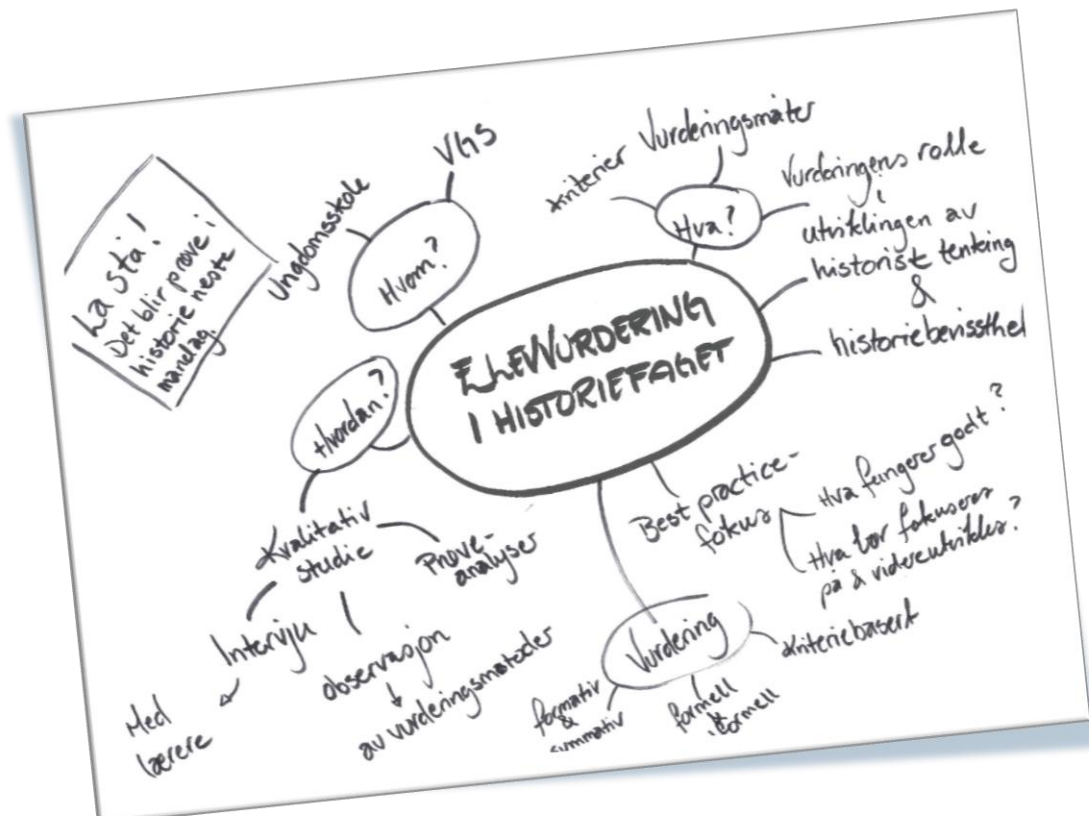 La stå!
Det blir prøve i
historie neste
mandag.
Ungdomsskole
VGS
Hvem?
Kriterier
Vurderingsmåter
Hva?
Vurderingens rolle
i
utviklingen av
historisk tenking
&
historiebevissthet
ELEVVURDERING
I HISTORIEFAGET
Hvordan?
Kvalitativ
studie
Prøve-
analyser
Intervju
Med
lærere
observasjon
av vurderingsmetoder
Best practice-
fokus
Hva fungerer godt?
Hva bør fokuseres
på & videreutvikles?
Vurdering
Kriteriebasert
formativ
&
summativ
formell
&
uformell